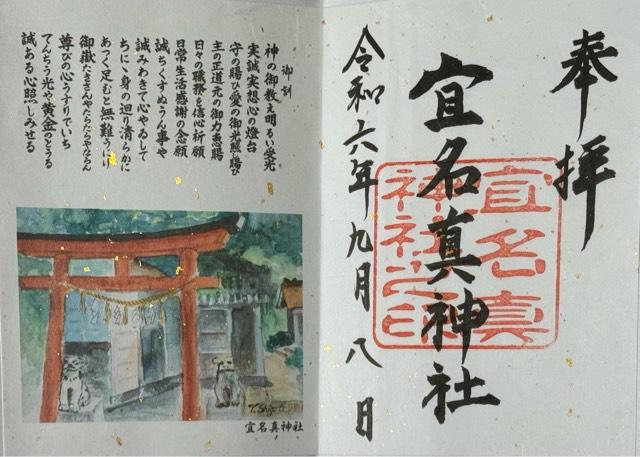 奉拝
宜名真神社
宜名真
神社之印
令和六年九月八日
御訓
神の御教え明るい受光
実誠実想心の燈台
守の賜ひ愛の御光照賜ひ
主の正道元の御力恵賜
日々の職務を信心祈願
日常生活感謝の念願
誠ちくすぬうん事や
誠みわきて心やゐして
ちにく身の廻り清らかに
あつく足むと無難うにり
御嶽たきさんやたらたらやならん
尊びの心うすりでいち
てんちう光や黄金のとうる
誠ある心照しみせる
宜名真神社